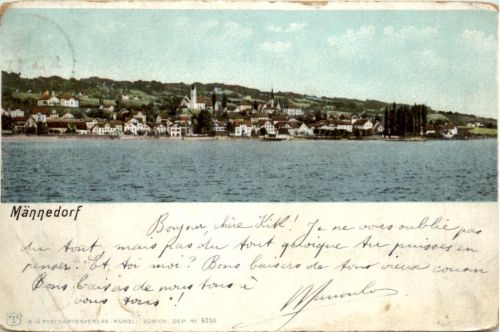 Männedorf
Bonjour, chère Kitl! Je ne vous oublie pas
du tout, mais pas du tout quoique tu puisses en
penser! Et toi moi? Bons baisers de ton vieux cousin
Bons baisers de nous tous à
vous tous!!
A-G POSTKARTENVERLAG KÜNZLI, ZÜRICH, DEP. Nº 6550